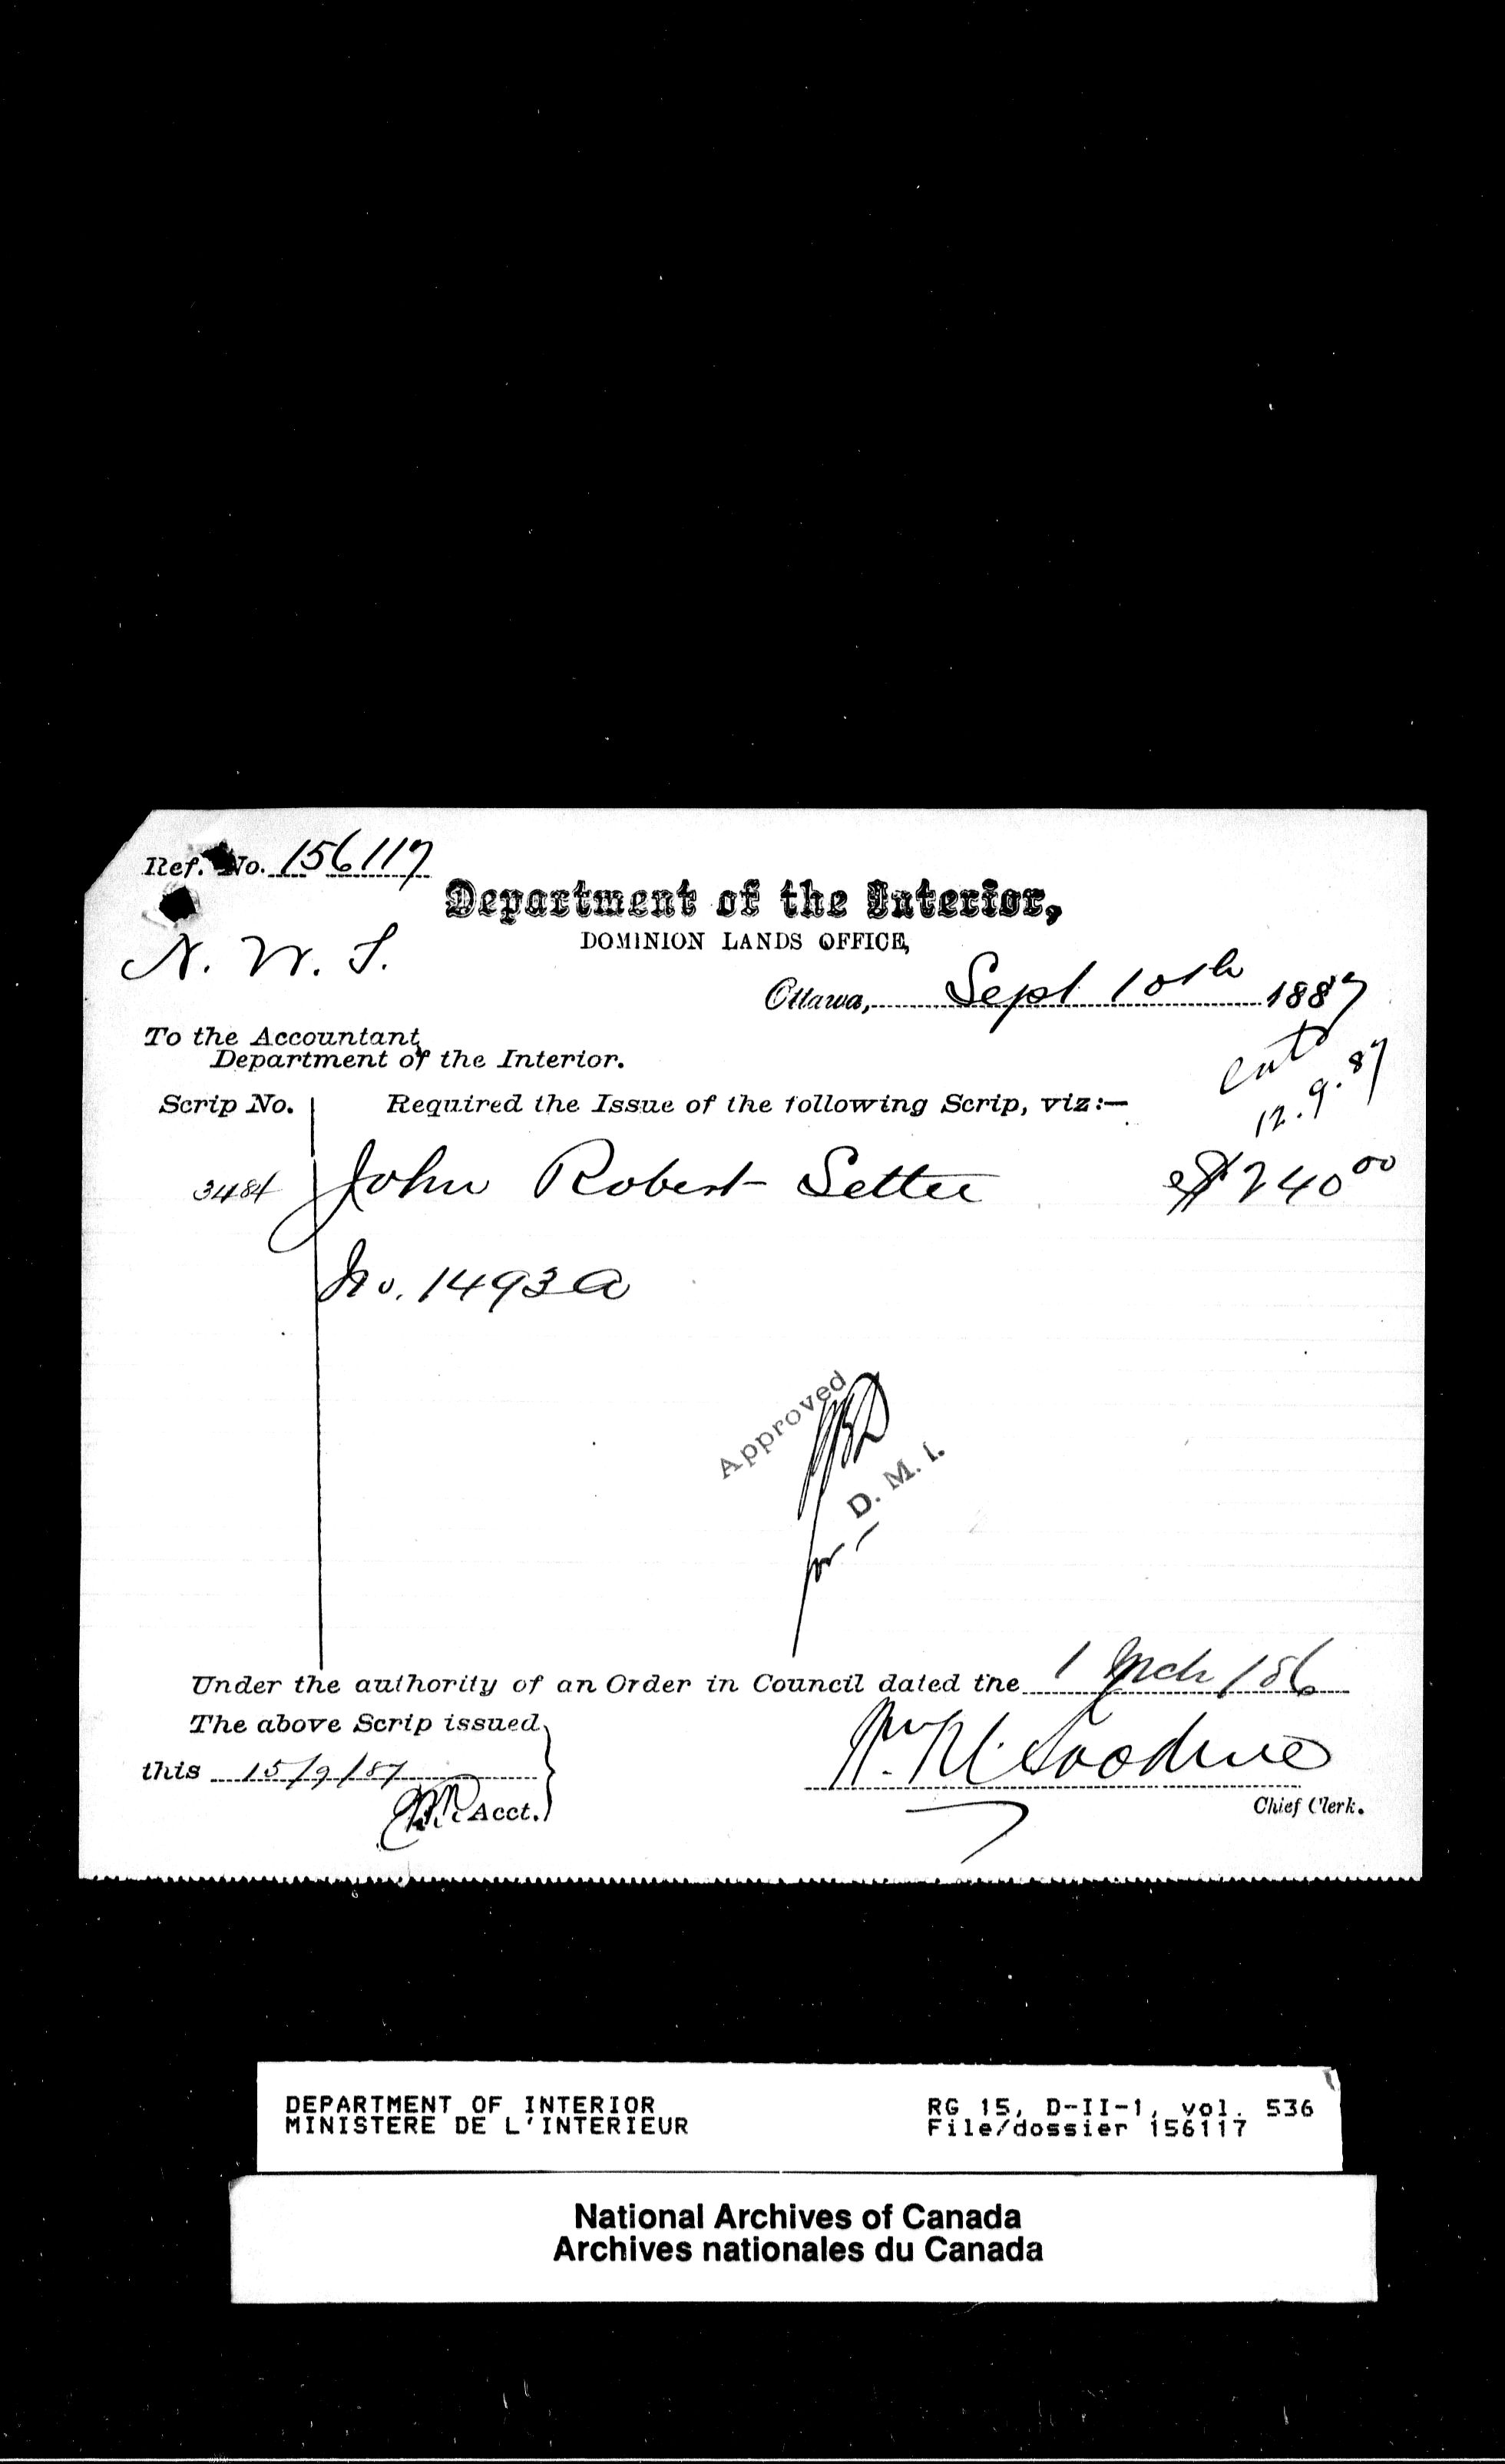 Ref. No. 156117
Department of the Interior,
DOMINION LANDS OFFICE,
N. W. T.
Ottawa, Sept 10th 1887
To the Accountant
Department of the Interior.
entd
12.9.87
Scrip No. Required the Issue of the following Scrip, viz:—
3484 John Robert Settee $240 00
No. 1493 a
Approved
for D. M. I.
Under the authority of an Order in Council dated the 1 Mch /86
The above Scrip issued
this 15/9/87
Acct.
Chief Clerk.
DEPARTMENT OF INTERIOR RG 15, D-II-1, vol. 536
MINISTERE DE L'INTERIEUR File/dossier 156117
National Archives of Canada
Archives nationales du Canada